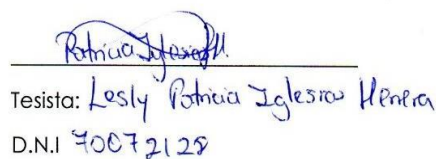 Patricia Iglesias H.
Tesista: Lesly Patricia Iglesias Herrera
D.N.I 70072128